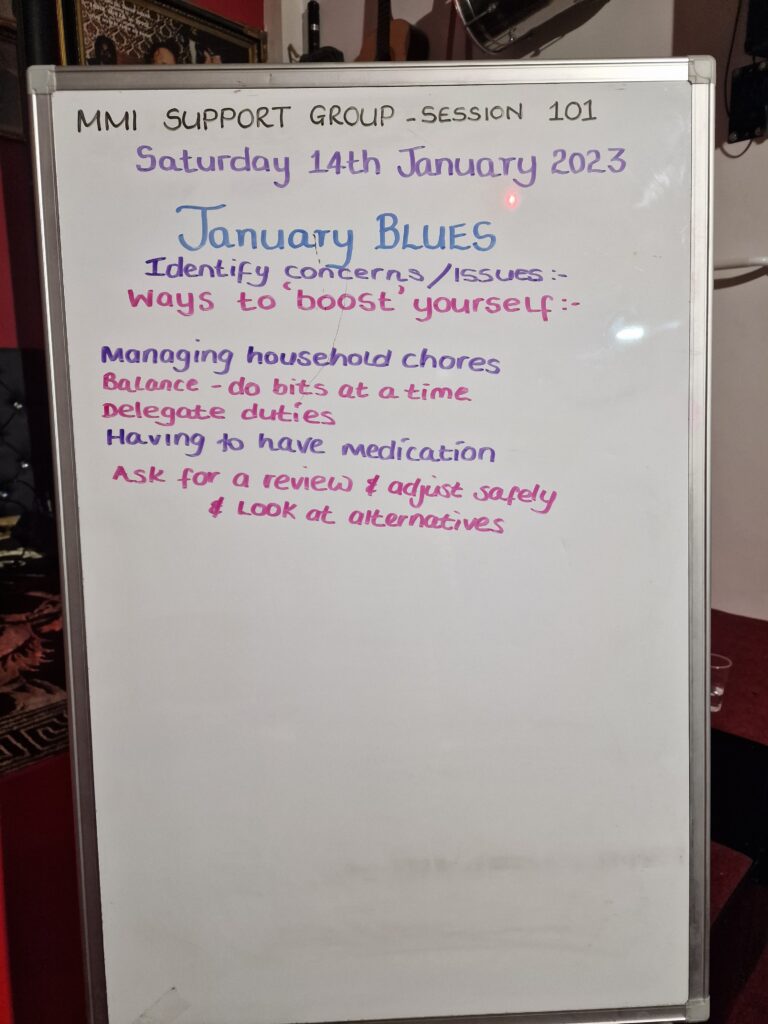 MMI SUPPORT GROUP - SESSION 101
Saturday 14th January 2023
January BLUES
Identify concerns/Issues:-
Ways to 'boost' yourself:-
Managing household chores
Balance - do bits at a time
Delegate duties
Having to have medication
Ask for a review & adjust safely
& Look at alternatives